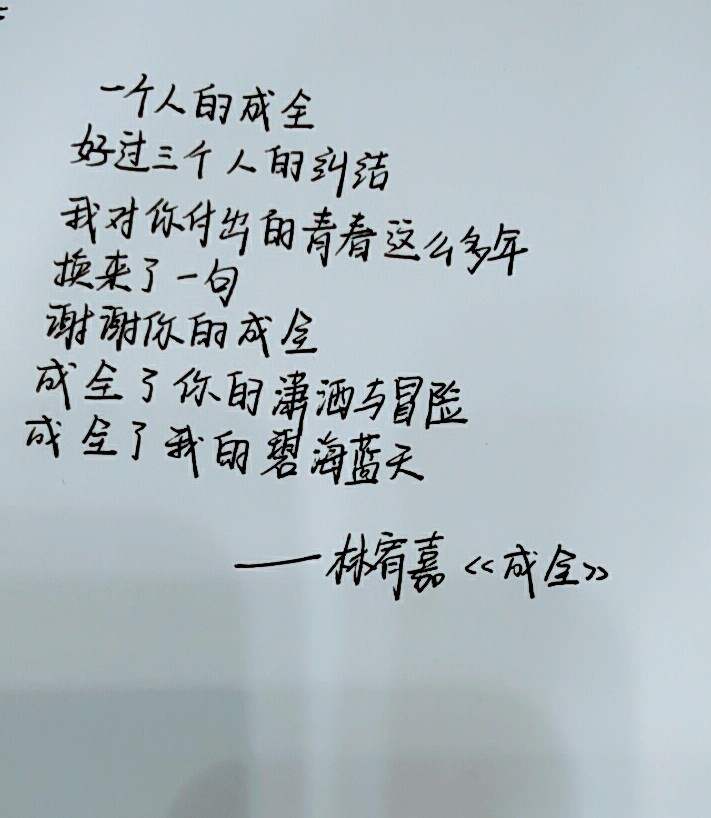 一个人的成全
好过三个人的纠结
我对你付出的青春这么多年
换来了一句
谢谢你的成全
成全了你的潇洒与冒险
成全了我的碧海蓝天
——林宥嘉《成全》